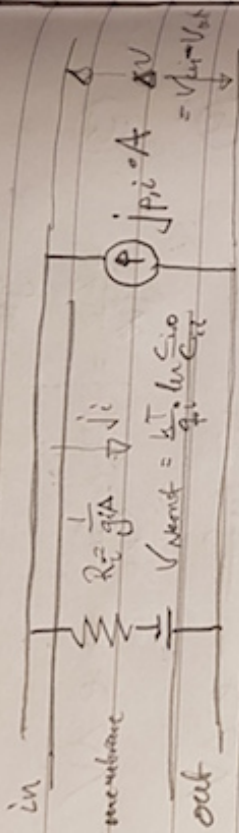 in
membrane
out
R_i = 1/(g_i A)
↓ j_i
V_Nernst = kT/q_i · ln c_io/c_ii
j_p,i · A
ΔV
= V_in - V_out